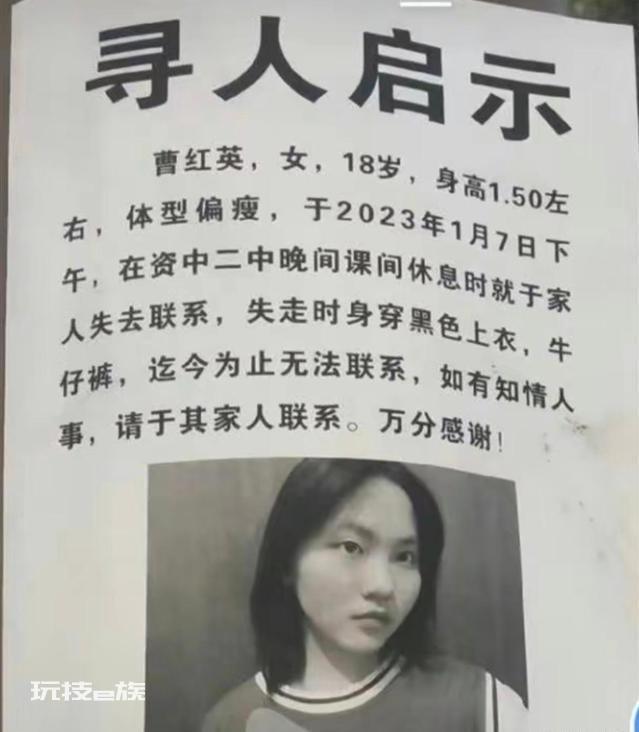 寻人启示
曹红英，女，18岁，身高1.50左
右，体型偏瘦，于2023年1月7日下
午，在资中二中晚间课间休息时就于家
人失去联系，失走时身穿黑色上衣，牛
仔裤，迄今为止无法联系，如有知情人
事，请于其家人联系。万分感谢！
玩技e族